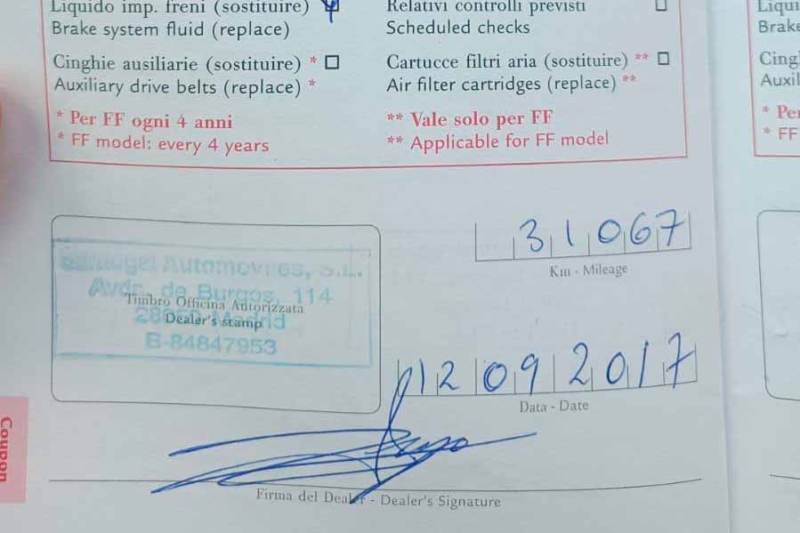 Liquido imp. freni (sostituire)
Brake system fluid (replace)
Cinghie ausiliarie (sostituire) * ☐
Auxiliary drive belts (replace) *
* Per FF ogni 4 anni
* FF model: every 4 years
Relativi controlli previsti ☐
Scheduled checks
Cartucce filtri aria (sostituire) ** ☐
Air filter cartridges (replace) **
** Vale solo per FF
** Applicable for FF model
Liqui
Brake
Cing
Auxil
* Pe
* FF
31067
Km - Mileage
Automovres, S.L.
Avda. de Burgos, 114
Timbro Officina Autorizzata
Madrid
Dealer's stamp
B-84847953
12 09 2017
Data - Date
Firma del Dealer - Dealer's Signature
Coupon